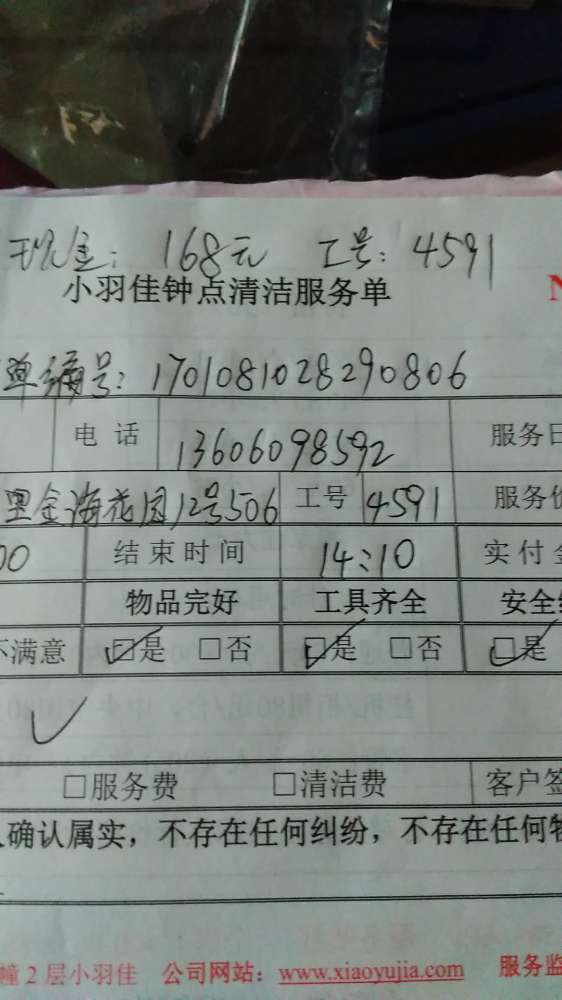 现金：168元 工号：4591
小羽佳钟点清洁服务单 N
单编号：1701081028290806
电话 13606098592 服务日
里金海花园12号506 工号 4591 服务
00 结束时间 14:10 实付金
物品完好 工具齐全 安全
不满意 ☑是 □否 ☑是 □否 ☑是
✓
□服务费 □清洁费 客户签
确认属实，不存在任何纠纷，不存在任何物
幢2层小羽佳 公司网站：www.xiaoyujia.com 服务监